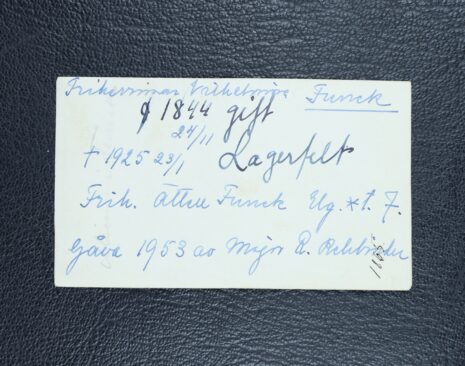 Friherrinnan Vilhelmina Funck
f 1844 gift
24/11
† 1925 23/1 Lagerfelt
Frih. Ätten Funck Elg. * t. 7.
Gåva 1953 av Major R.